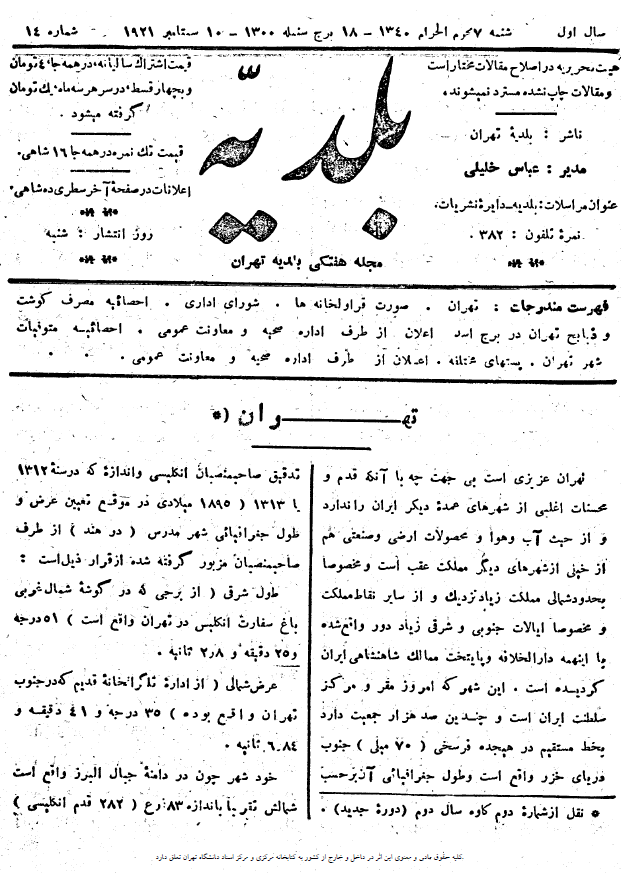 سال اول
شنبه ۷ محرم الحرام ۱۳۴۰ – ۱۸ برج سنبله ۱۳۰۰ – ۱۰ سپتامبر ۱۹۲۱
شماره ۱۴
هیئت تحریریه در اصلاح مقالات مختار است
و مقالات چاپ نشده مسترد نمیشوند،
ناشر : بلدیهٔ تهران
مدیر : عباس خلیلی
عنوان مراسلات: بلدیه–دایرهٔ نشریات،
نمرهٔ تلفون : ۳۸۲ ۰
بلدیّه
مجله هفتگی بلدیه تهران
قیمت اشتراك سالیانه، در همه جا ٤ تومان
و بچهار قسط، در سر هر سه ماه، یك تومان
گرفته میشود .
قیمت تك نمره در همه جا ۱٦ شاهی.
اعلانات در صفحهٔ آخر سطری ده شاهی.
روز انتشار : شنبه
فهرست مندرجات : تهران . صورت قراولخانه ها . شورای اداری . احصائیه مصرف گوشت
و ذبایح تهران در برج اسد اعلان از طرف اداره صحیه و معاونت عمومی . احصائیه متوفیات
شهر تهران . پستهای مختلفه . اعلان از طرف اداره صحیه و معاونت عمومی .
تهــران (*
تهران عزیزی است بی جهت چه با آنکه قدم و
محسنات اغلبی از شهرهای عمدهٔ دیگر ایران را ندارد
و از حیث آب وهوا و محصولات ارضی وصنعتی هم
از خیلی ازشهرهای دیگر مملکت عقب است و مخصوصا
بحدود شمالی مملکت زیاد نزدیك و از سایر نقاط مملکت
و مخصوصا ایالات جنوبی و شرقی زیاد دور واقع شده
با اینهمه دارالخلافه وپایتخت ممالك شاهنشاهی ایران
گردیده است . این شهر که امروز مقر و مرکز
سلطنت ایران است و چندین صد هزار جمعیت دارد
بخط مستقیم در هیجده فرسخی ( ۷۰ میلی ) جنوب
دریای خزر واقع است وطول جغرافیائی آن برحسب
* نقل از شمارهٔ دوم کاوه سال دوم (دورهٔ جدید) .
تدقیق صاحبمنصبان انگلیسی واندازهٔ که درسنهٔ ۱۳۱۲
یا ۱۳۱۳ ( ۱۸۹۵ میلادی در موقع تعیین عرض و
طول جغرافیائی شهر مدرس ( در هند ) از طرف
صاحبمنصبان مزبور گرفته شده از قرار ذیل است :
طول شرقی ( از برجی که در گوشهٔ شمال غربی
باغ سفارت انگلیس در تهران واقع است ) ۵۱ درجه
و ۲۵ دقیقه و ۲٫۸ ثانیه .
عرض شمالی ( از ادارهٔ تلگرافخانهٔ قدیم که در جنوب
تهران واقع بوده ) ۳۵ درجه و ٤۱ دقیقه و
٦٫۸٤ ثانیه .
خود شهر چون در دامنهٔ جبال البرز واقع است
شمالش تقریباً باندازه ۸۳ ذرع ( ۲۸۲ قدم انگلیسی )
کلیه حقوق مادی و معنوی این اثر در داخل و خارج از کشور به کتابخانه مرکزی و مرکز اسناد دانشگاه تهران تعلق دارد.